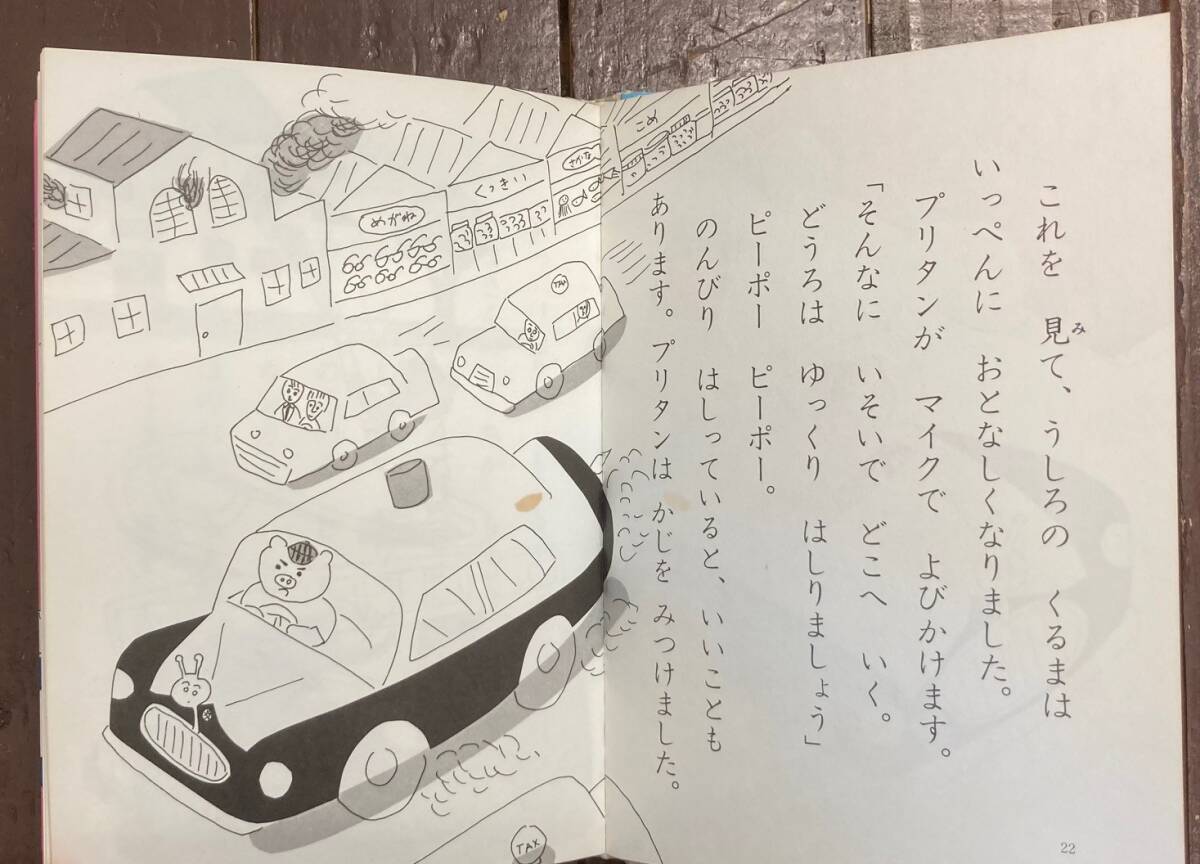 これを 見て、うしろの くるまは
み
いっぺんに おとなしくなりました。
プリタンが マイクで よびかけます。
「そんなに いそいで どこへ いく。
どうろは ゆっくり はしりましょう」
ピーポー ピーポー。
のんびり はしっていると、いいことも
あります。プリタンは かじを みつけました。
22
こめ
さかな
くっきい
めがね
TAX
TAX